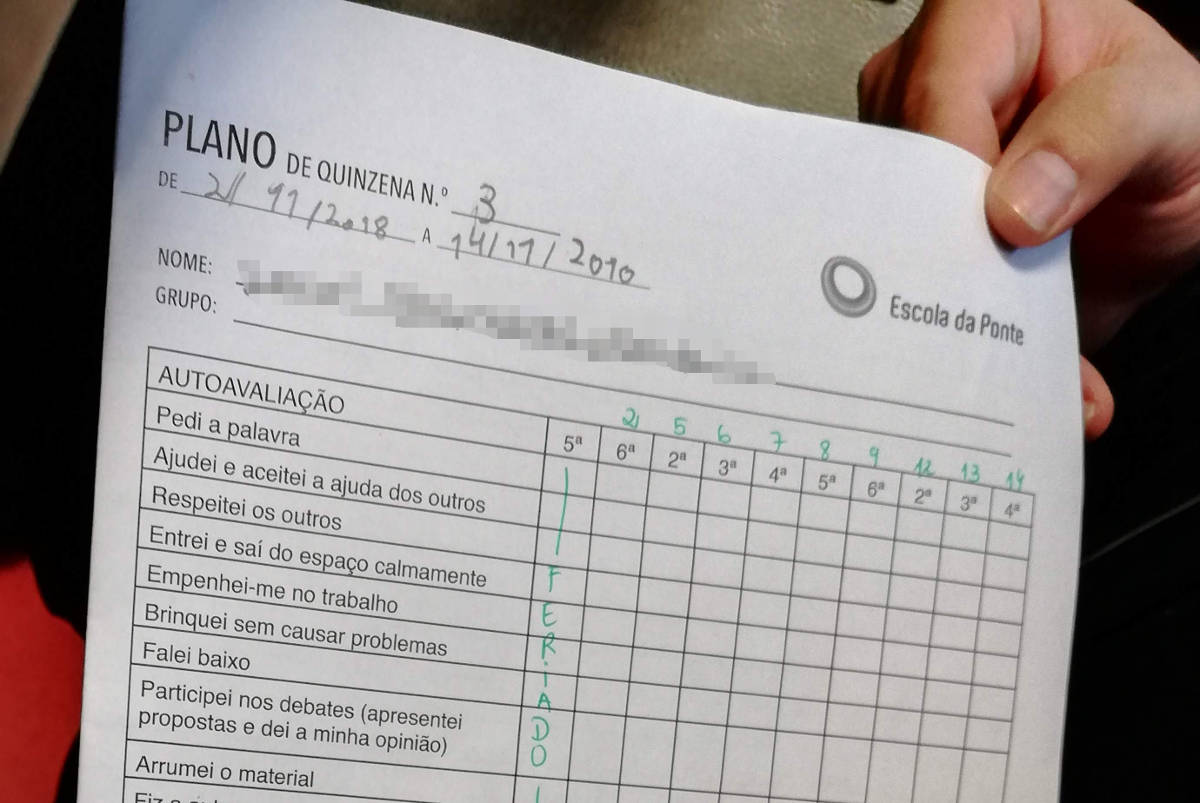 PLANO DE QUINZENA N.º 3
DE 2/11/2018 A 14/11/2010
Escola da Ponte
NOME:
GRUPO:
AUTOAVALIAÇÃO
2 5 6 7 8 9 12 13 14
5ª 6ª 2ª 3ª 4ª 5ª 6ª 2ª 3ª 4ª
Pedi a palavra
Ajudei e aceitei a ajuda dos outros
Respeitei os outros
Entrei e saí do espaço calmamente
Empenhei-me no trabalho
Brinquei sem causar problemas
Falei baixo
Participei nos debates (apresentei
propostas e dei a minha opinião)
Arrumei o material
FERIADO